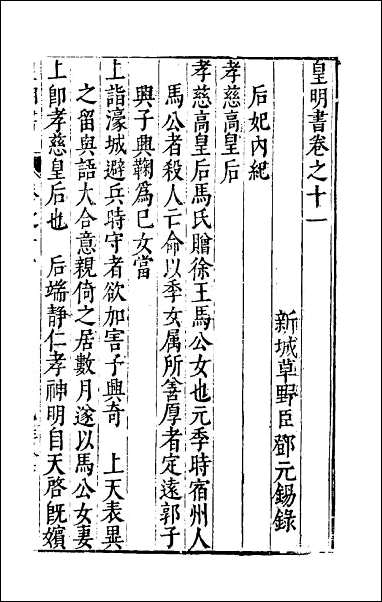 皇明書卷之十一
新城草野臣鄧元錫錄
后妃內紀
孝慈高皇后
孝慈高皇后馬氏贈徐王馬公女也元季時宿州人
馬公者殺人亡命以季女属所善厚者定遠郭子
興子興鞠為已女當
上詣濠城避兵時守者欲加害子興奇　上天表異
之留與語大合意親倚之居數月遂以馬公女妻
上卽孝慈皇后也　后端靜仁孝神明自天啓旣嬪